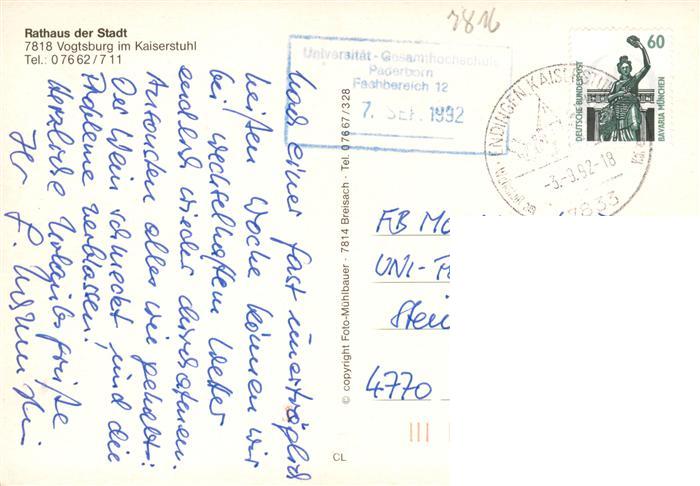 Rathaus der Stadt
7818 Vogtsburg im Kaiserstuhl
Tel.: 0 76 62 / 7 11
7816
Universität - Gesamthochschule
Paderborn
Fachbereich 12
7. SEP. 1992
ENDINGEN, KAISERSTUHL
-3.-9.92-18
7833
60
DEUTSCHE BUNDESPOST
BAVARIA MÜNCHEN
Nach einer fast unerträglich
heißen Woche können wir
bei wechselhaftem Wetter
endlich wieder durchatmen.
Ansonsten alles wie gehabt:
Der Wein schmeckt und die
Probleme verblassen.
Herzliche Urlaubsgrüße
Ihr
© copyright Foto-Mühlbauer - 7814 Breisach - Tel. 0 76 67 / 328
FB M
UNI-P
Stei
4770
CL